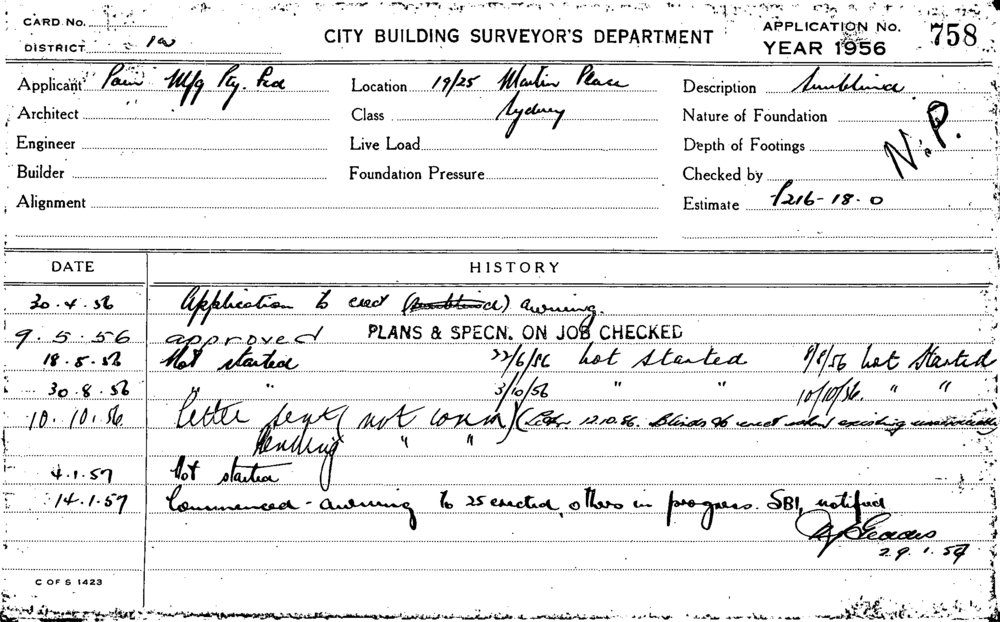 CARD No.
DISTRICT 1a
CITY BUILDING SURVEYOR'S DEPARTMENT
APPLICATION No. 758
YEAR 1956
Applicant Mfg Pty. Ltd Location 19/25 Martin Place Description Sunblind
Architect Class Sydney Nature of Foundation
Engineer Live Load Depth of Footings
N.P.
Builder Foundation Pressure Checked by
Alignment Estimate £216-18.0
DATE HISTORY
30.4.56 Application to erect (sunblind) awning.
9.5.56 approved PLANS & SPECN. ON JOB CHECKED
18.5.56 Not started 22/6/56 not started 8/8/56 not started
30.8.56 " " 3/10/56 " " 10/10/56. " "
10.10.56 letter sent (not comm) (Letter 12.10.56. Blinds to erect when existing
Pending " "
4.1.57 Not started
14.1.57 Commenced - awning to 25 erected, others in progress. SBI, notified
29.1.57
C OF S 1423